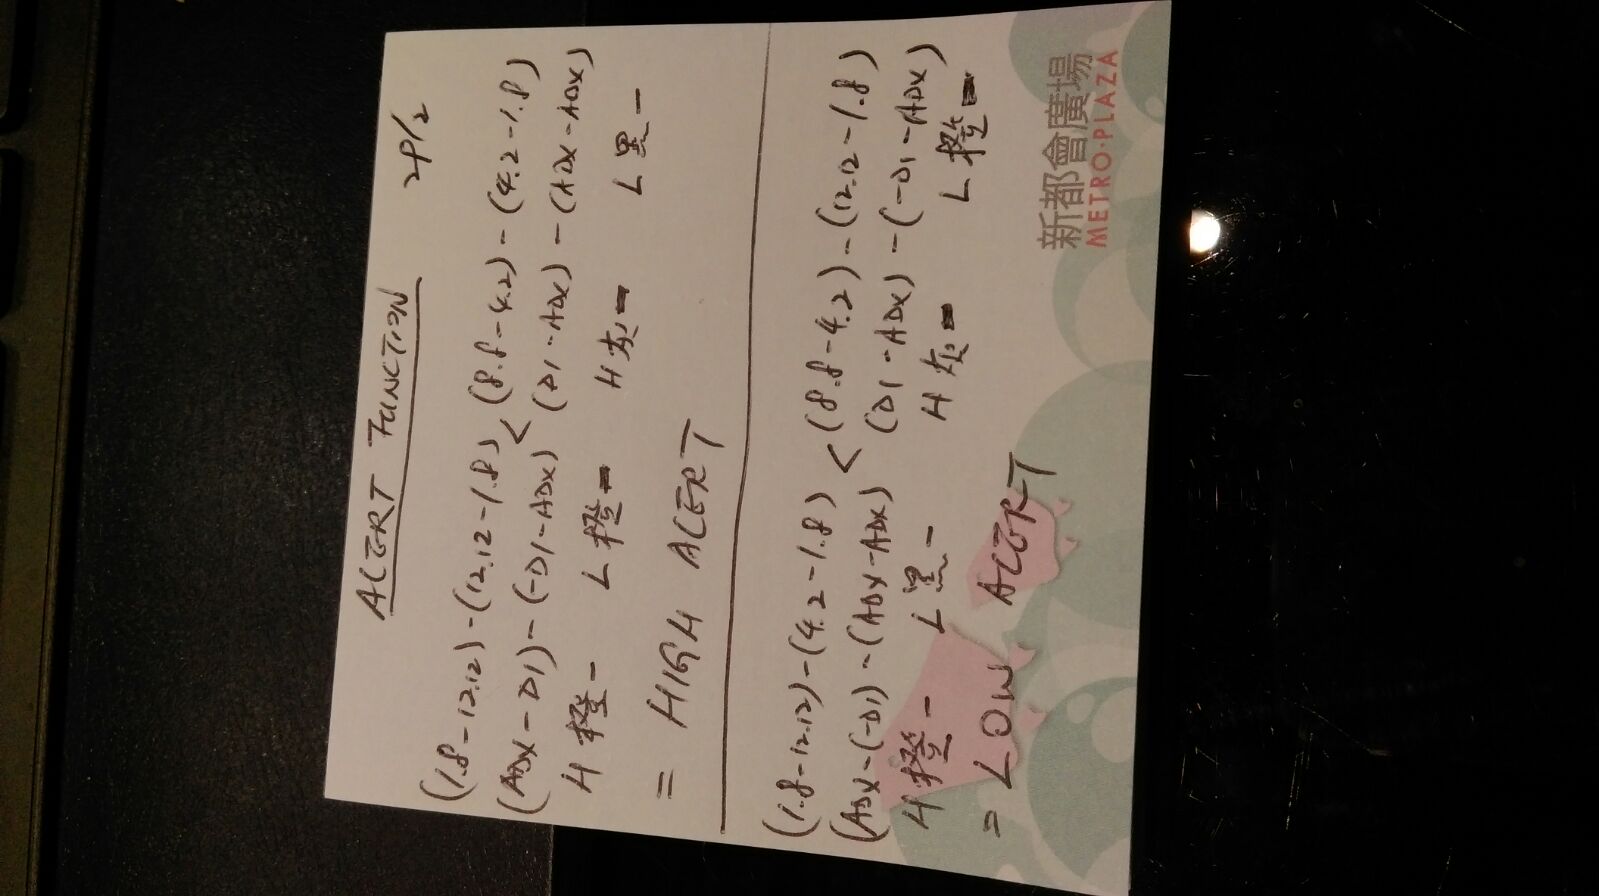 ALERT FUNCTION 2P/2
(1.8-12.12)-(12.12-1.8) < (8.8-4.2)-(4.2-1.8)
(ADX-D1)-(-D1-ADX) (D1-ADX)-(ADX-ADX)
H橙- L橙- H灰- L黑-
= HIGH ALERT
(1.8-12.12)-(4.2-1.8) < (8.8-4.2)-(12.12-1.8)
(ADX-(-D1)-(ADX-ADX) (D1-ADX)-(-D1-ADX)
H橙- L黑- H灰- L橙-
= LOW ALERT
新都會廣場
METRO·PLAZA